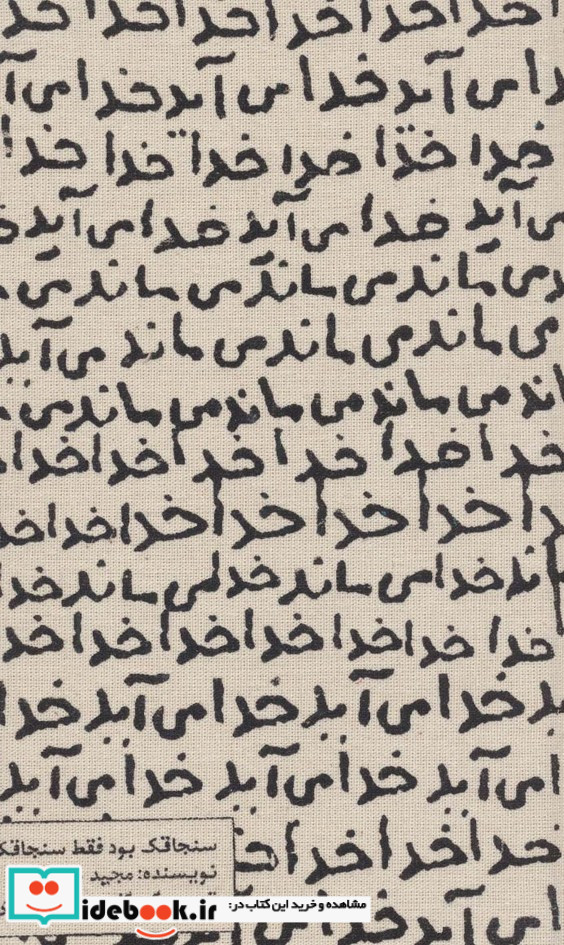 خدا خدا خدا خدا خدا خدا
خدا می آید خدا می آید خدا می آ
خدا خدا خدا خدا خدا خدا
می آید خدا می آید خدا می آید
می ماند می ماند می ماند می
می ماند می ماند می ماند می آید
ماند می ماند می ماند می ماند می
خدا خدا خدا خدا خدا خدا
خدا خدا خدا خدا خدا
ماند خدا می ماند خدا می ماند خدا
خدا خدا خدا خدا خدا خدا
خدا می آید خدا می آید خدا
می آید خدا می آید خدا می آید
خدا خدا خدا خدا
سنجاقک بود فقط سنجاقک
نویسنده: مجید
مشاهده و خرید این کتاب در:
idebook.ir